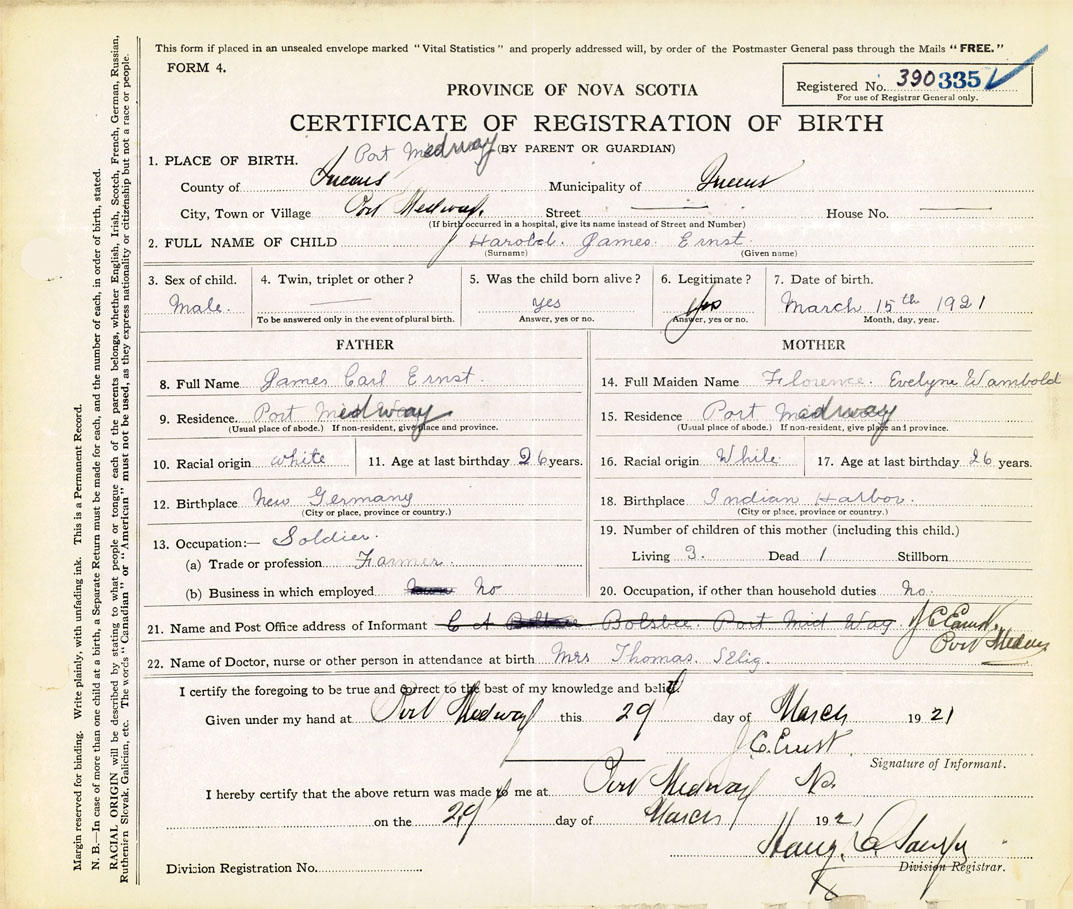 This form if placed in an unsealed envelope marked "Vital Statistics" and properly addressed will, by order of the Postmaster General pass through the Mails "FREE."
FORM 4.
Registered No. 390335
For use of Registrar General only.
PROVINCE OF NOVA SCOTIA
CERTIFICATE OF REGISTRATION OF BIRTH
(BY PARENT OR GUARDIAN)
1. PLACE OF BIRTH. Port Medway
County of Queens Municipality of Queens
City, Town or Village Port Medway. Street House No.
(If birth occurred in a hospital, give its name instead of Street and Number)
2. FULL NAME OF CHILD Harobd. James Ernst
(Surname) (Given name)
3. Sex of child. 4. Twin, triplet or other? 5. Was the child born alive? 6. Legitimate? 7. Date of birth.
Male. yes Yes March 15th 1921
To be answered only in the event of plural birth. Answer, yes or no. Answer, yes or no. Month, day, year.
FATHER
8. Full Name James Carl Ernst.
9. Residence. Port Medway
(Usual place of abode.) If non-resident, give place and province.
10. Racial origin white 11. Age at last birthday 26 years.
12. Birthplace New Germany
(City or place, province or country.)
13. Occupation:— Soldier.
(a) Trade or profession Farmer.
(b) Business in which employed No
MOTHER
14. Full Maiden Name Florence. Evelyne Wambold
15. Residence Port Medway
(Usual place of abode.) If non-resident, give place and province.
16. Racial origin While 17. Age at last birthday 26 years.
18. Birthplace Indian Harbor.
(City or place, province or country.)
19. Number of children of this mother (including this child.)
Living 3. Dead 1 Stillborn
20. Occupation, if other than household duties No.
21. Name and Post Office address of Informant C A Bolsbee Port Mid Way J C Ernst.
Port Medway
22. Name of Doctor, nurse or other person in attendance at birth Mrs Thomas. Selig.
I certify the foregoing to be true and correct to the best of my knowledge and belief.
Given under my hand at Port Medway this 29 day of March 1921
J. C. Ernst.
Signature of Informant.
I hereby certify that the above return was made to me at Port Medway Ns.
on the 29 day of March 1921
Division Registration No. Division Registrar.
Margin reserved for binding. Write plainly, with unfading ink. This is a Permanent Record.
N. B.—In case of more than one child at a birth, a Separate Return must be made for each, and the number of each, in order of birth, stated.
RACIAL ORIGIN will be described by stating to what people or tongue each of the parents belongs, whether English, Irish, Scotch, French, German, Russian,
Ruthenien Slovak, Galician, etc. The words "Canadian" or "American" must not be used, as they express nationality or citizenship but not a race or people.